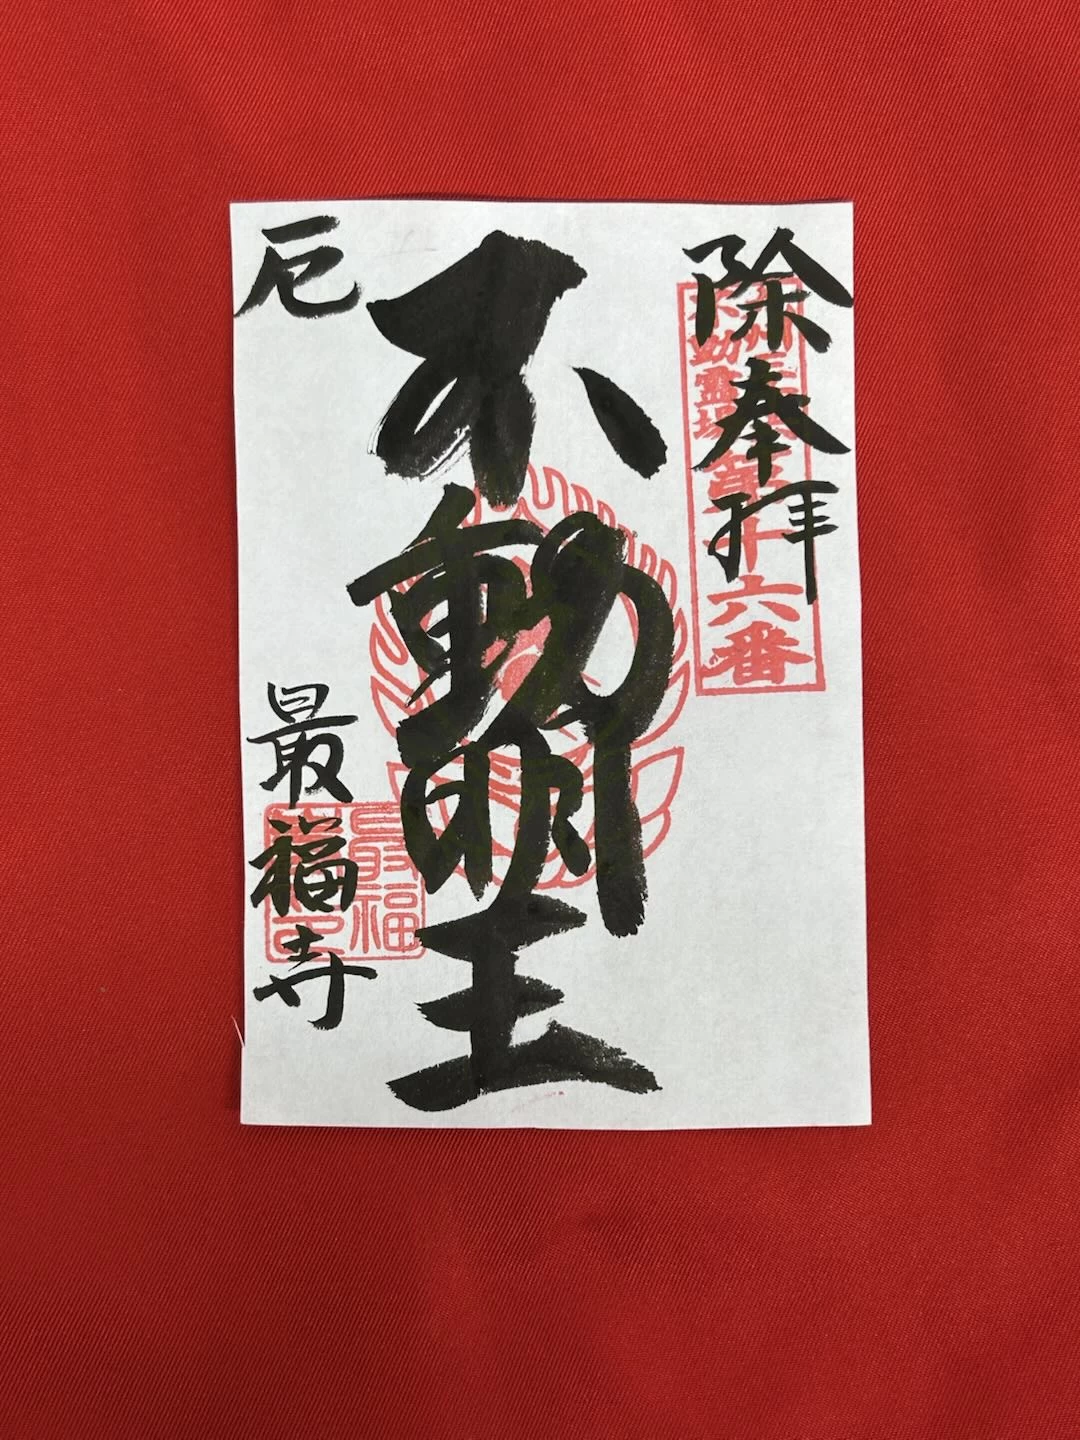 除
奉拝
不動霊場
十六番
不動明王
厄
最福寺
最福